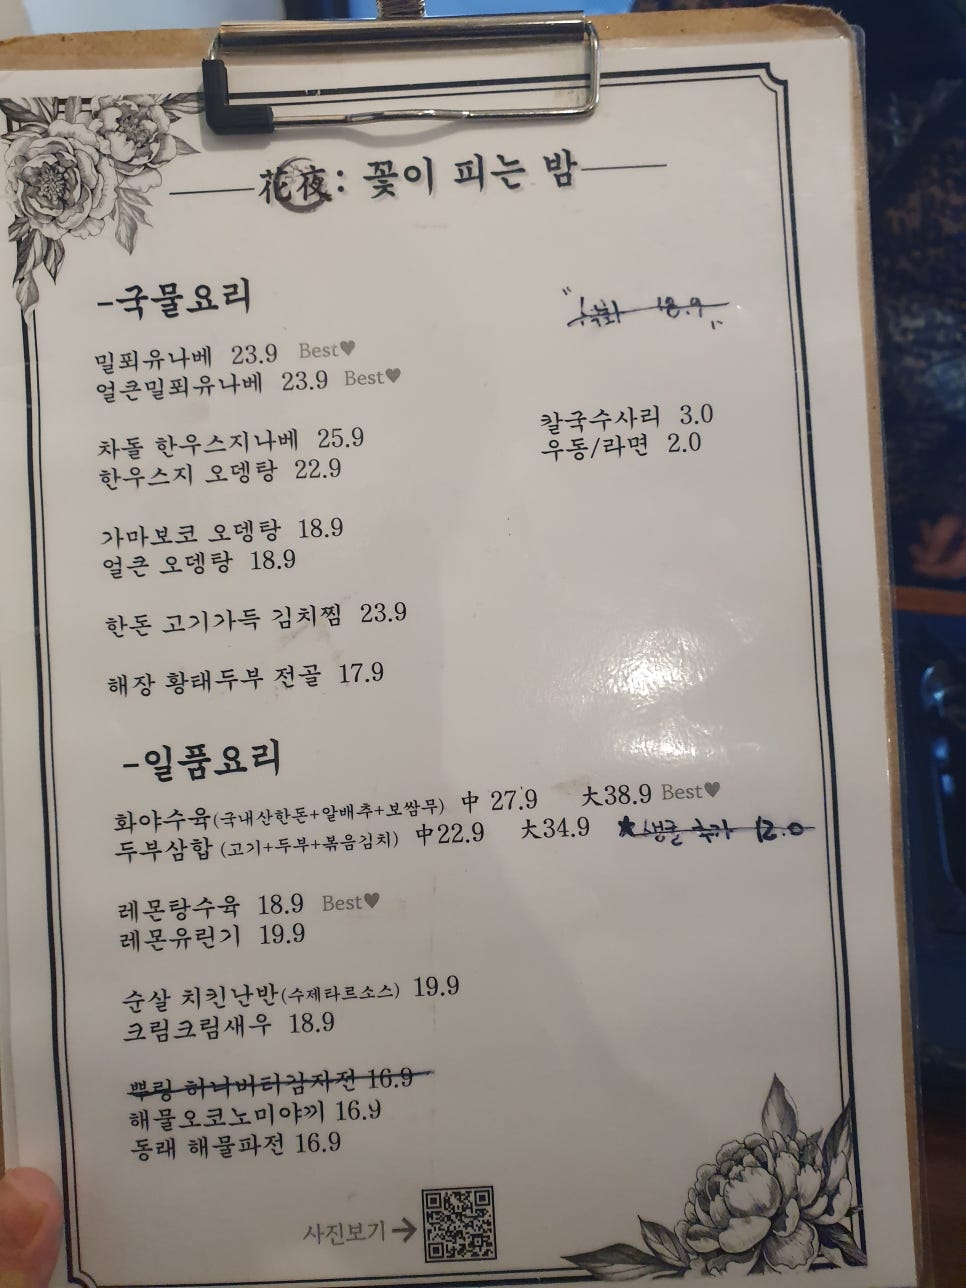 花夜: 꽃이 피는 밤
-국물요리
18.9
밀푀유나베 23.9 Best♥
얼큰밀푀유나베 23.9 Best♥
칼국수사리 3.0
우동/라면 2.0
차돌 한우스지나베 25.9
한우스지 오뎅탕 22.9
가마보코 오뎅탕 18.9
얼큰 오뎅탕 18.9
한돈 고기가득 김치찜 23.9
해장 황태두부 전골 17.9
-일품요리
화야수육(국내산한돈+알배추+보쌈무) 中 27.9 大38.9 Best♥
두부삼합 (고기+두부+볶음김치) 中22.9 大34.9 ★생굴 추가 12.0
레몬탕수육 18.9 Best♥
레몬유린기 19.9
순살 치킨난반(수제타르소스) 19.9
크림크림새우 18.9
뿌링 허니버터감자전 16.9
해물오코노미야끼 16.9
동래 해물파전 16.9
사진보기→